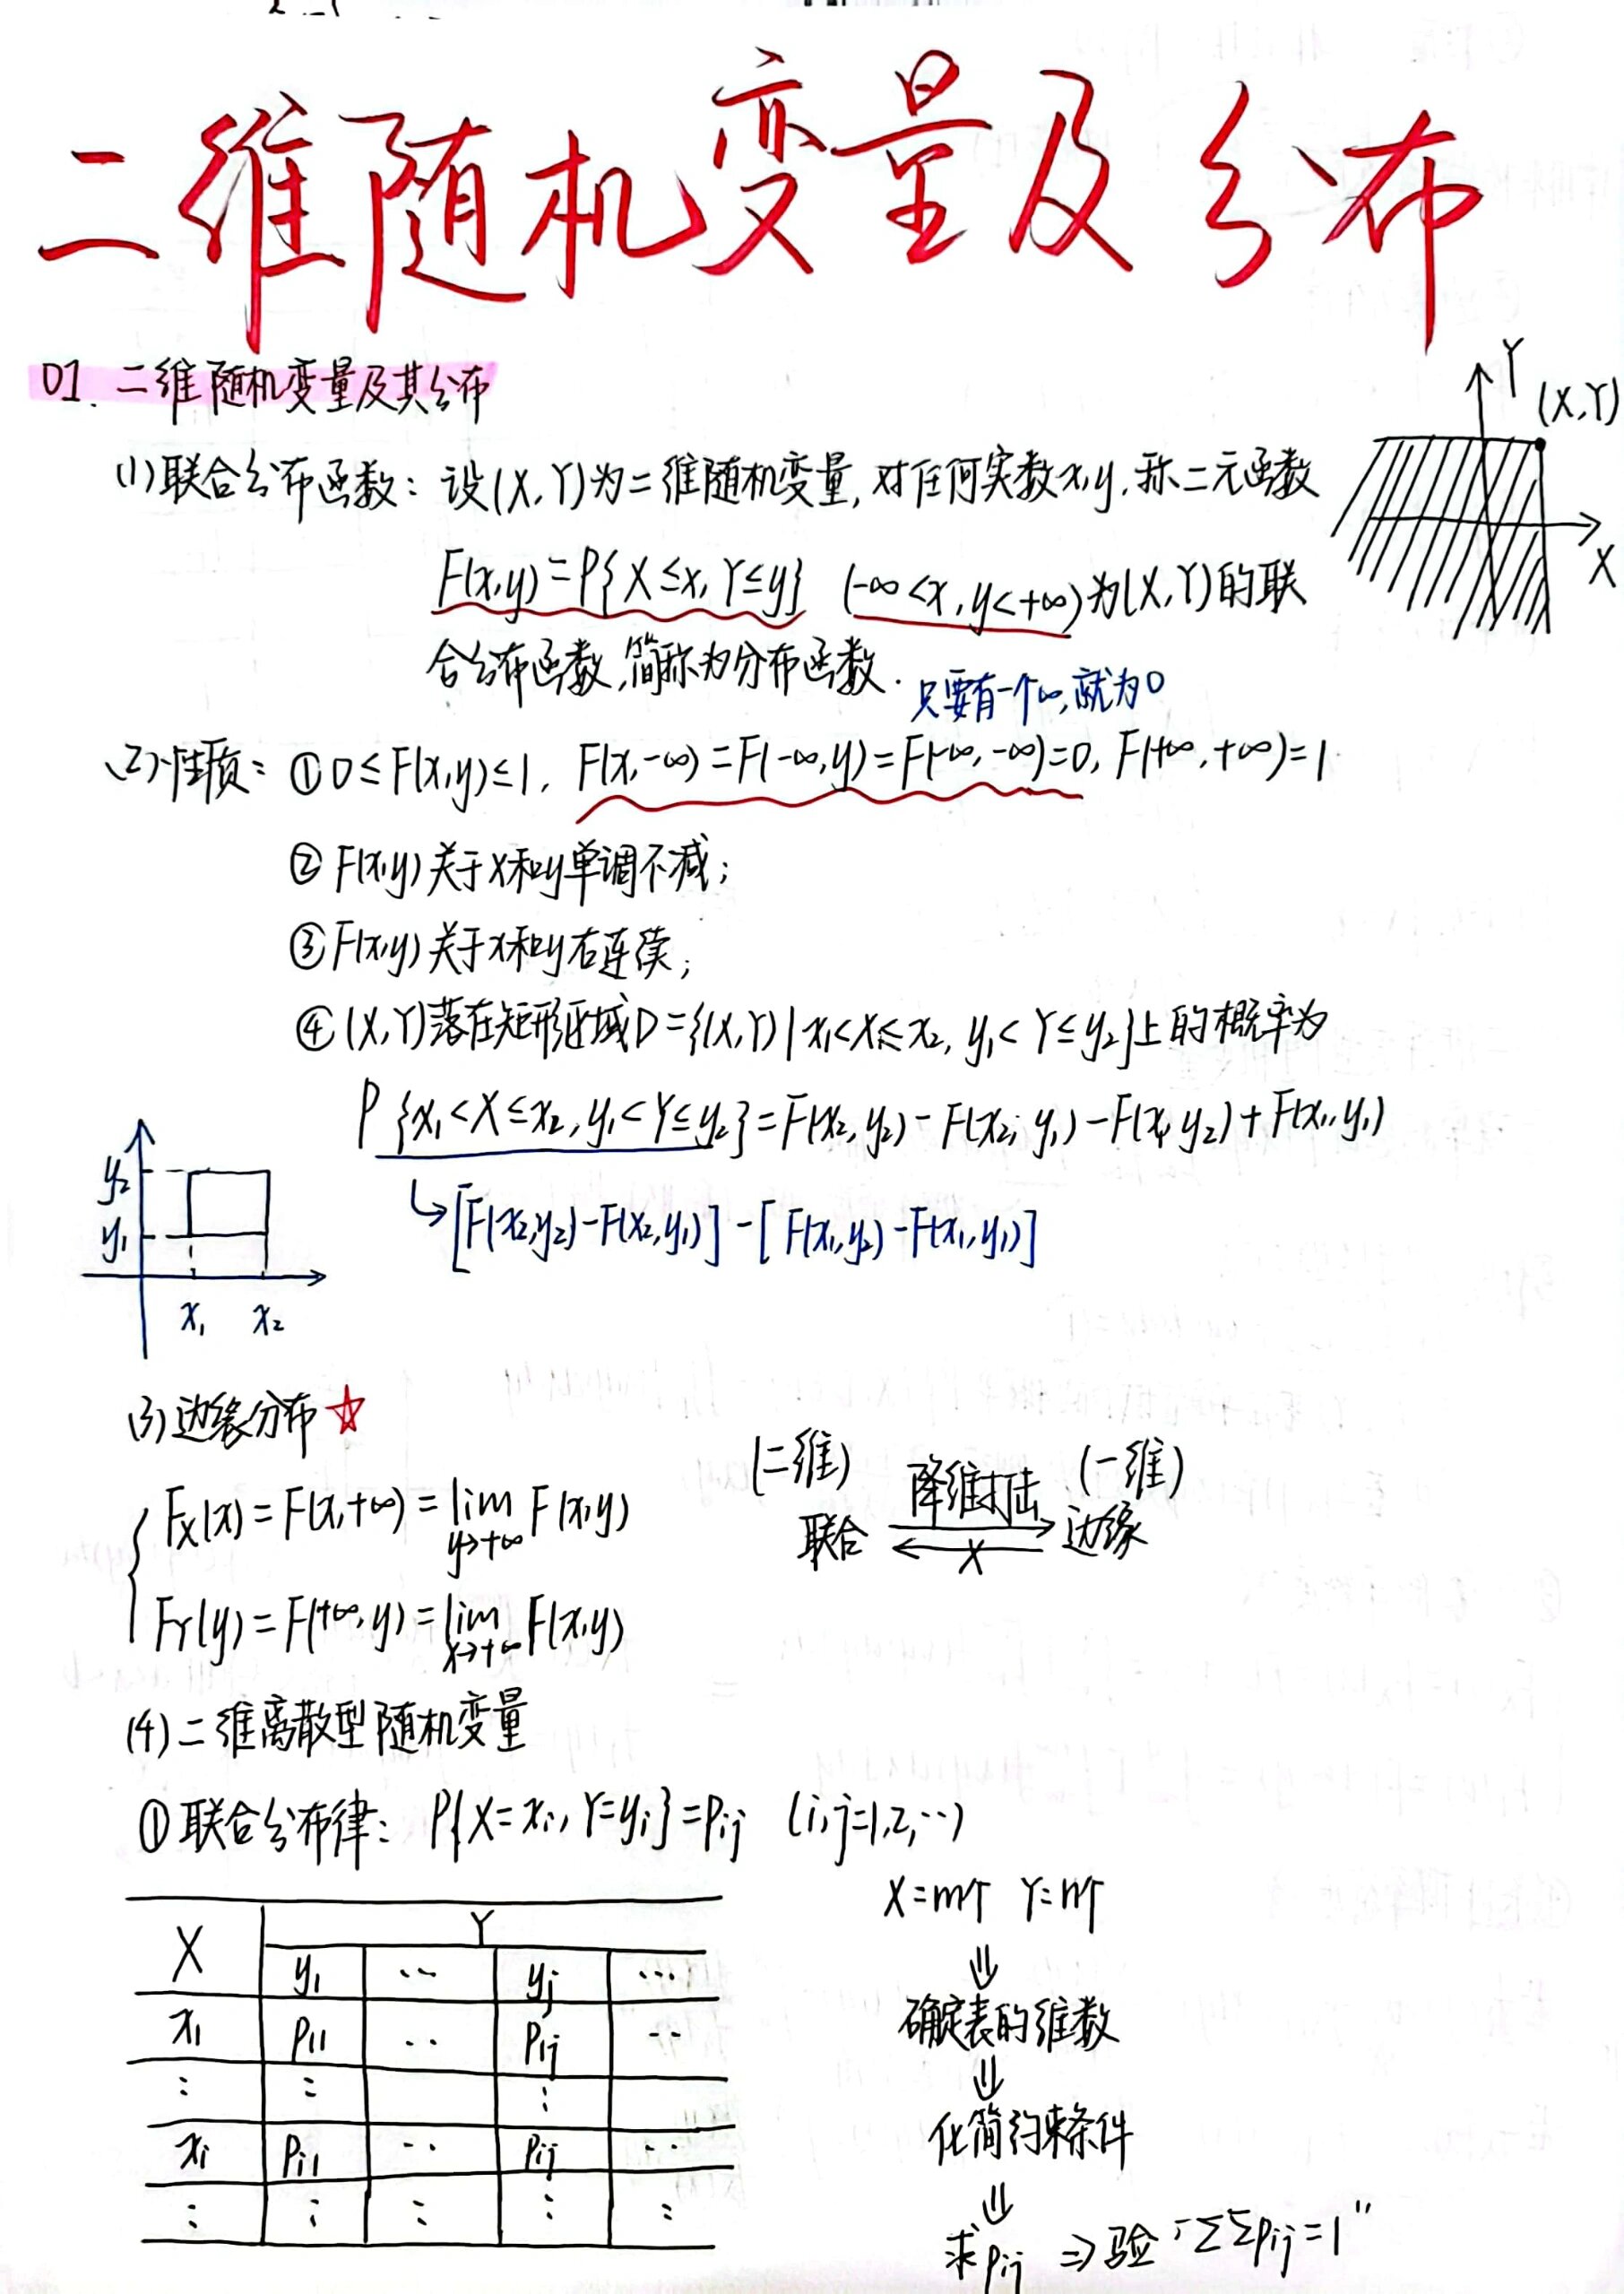 二维随机变量及分布
01. 二维随机变量及其分布
Y
(X,Y)
X
(1)联合分布函数: 设(X,Y)为二维随机变量,对任何实数x,y,称二元函数
F(x,y)=P{X≤x,Y≤y} (-∞<x,y<+∞)为(X,Y)的联
合分布函数,简称为分布函数.
只要有一个∞,就为0
(2)性质: ①0≤F(x,y)≤1, F(x,-∞)=F(-∞,y)=F(-∞,-∞)=0, F(+∞,+∞)=1.
② F(x,y)关于x和y单调不减;
③F(x,y)关于x和y右连续;
④(X,Y)落在矩形区域D={(X,Y)|x₁<X≤x₂, y₁<Y≤y₂}上的概率为
P{x₁<X≤x₂,y₁<Y≤y₂}=F(x₂,y₂)-F(x₂,y₁)-F(x₁,y₂)+F(x₁,y₁)
↳[F(x₂,y₂)-F(x₂,y₁)]-[F(x₁,y₂)-F(x₁,y₁)]
y₂
y₁
x₁ x₂
(3)边缘分布☆
Fx(x)=F(x,+∞)=lim F(x,y)
y→+∞
FY(y)=F(+∞,y)=lim F(x,y)
x→+∞
(二维) 降维打击 (一维)
联合 ⇄ 边缘
X
(4)二维离散型随机变量
①联合分布律: P{X=xi,Y=yi}=Pij (i,j=1,2,…)
X Y
y₁ … yj …
x₁ P₁₁ … P₁j …
⋮ ⋮ ⋮
xi Pi₁ … Pij …
⋮ ⋮ ⋮ ⋮ ⋮
X=m个 Y=n个
⇓
确定表的维数
⇓
化简约束条件
⇓
求Pij ⇒验“ΣΣPij=1”